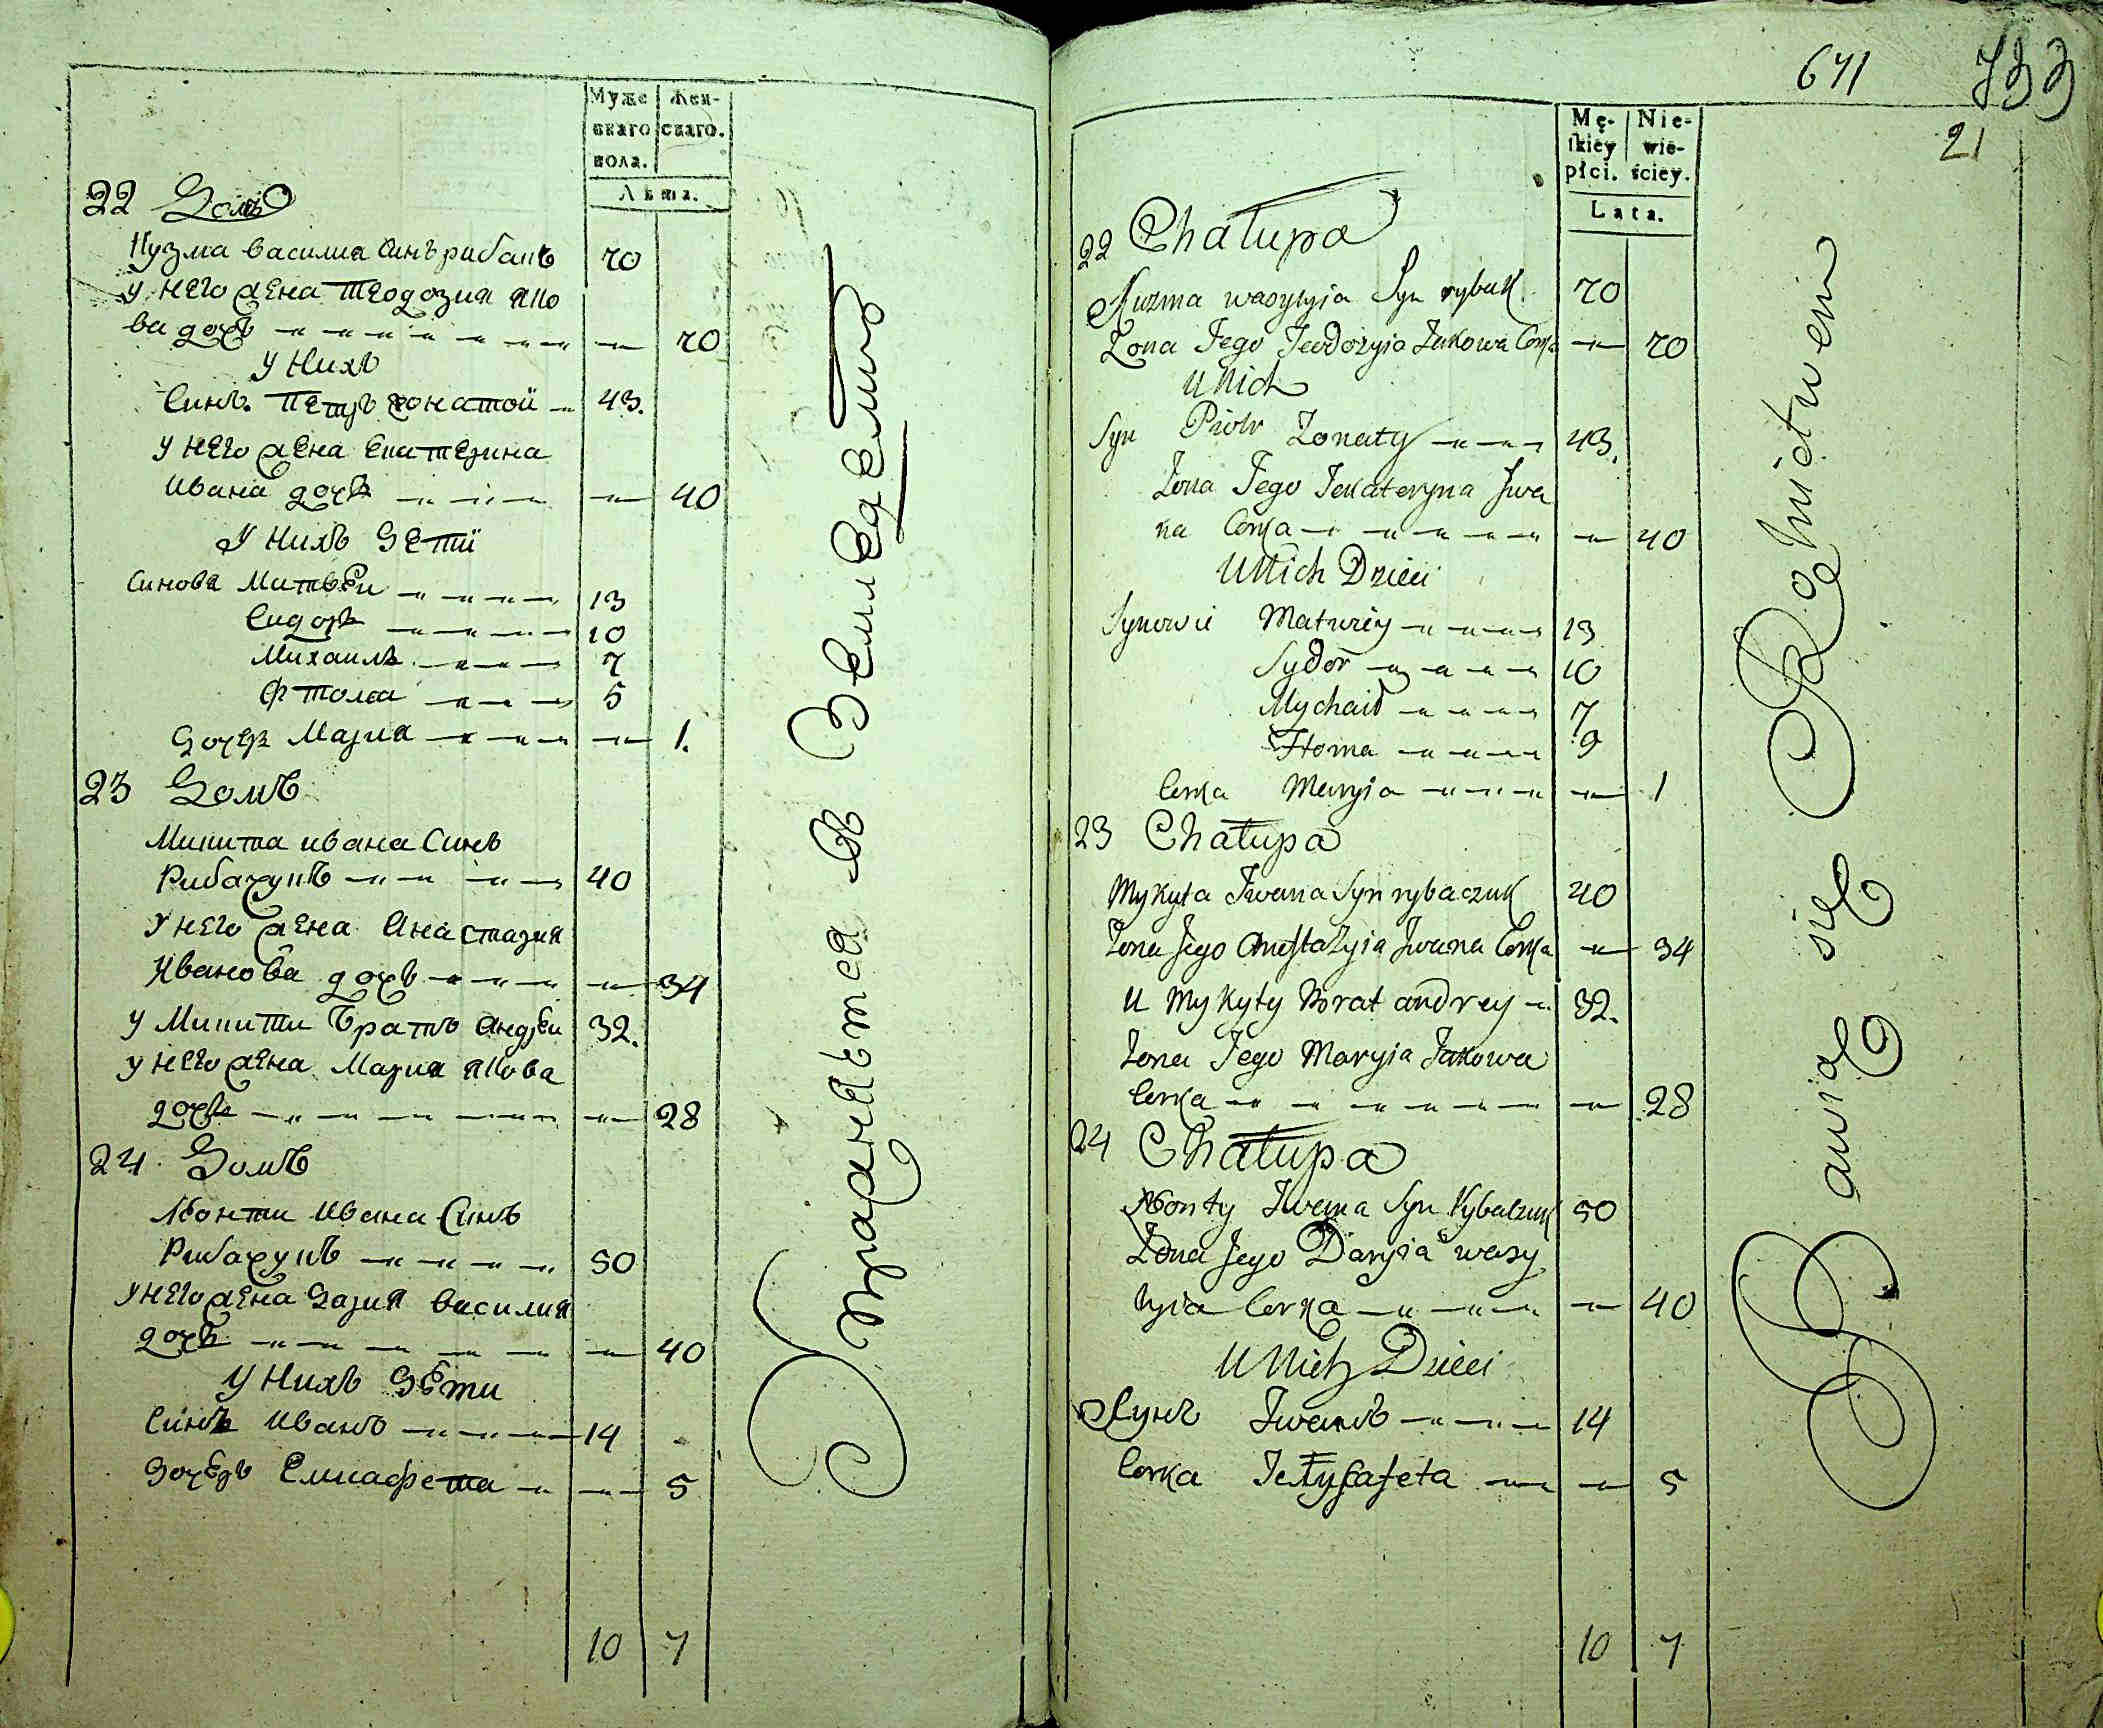 Муже
скаго
пола.
Жен-
скаго.
Лѣта.
22 Домъ
Кузма василиа Синъ рибакъ 70
у него жена Теодозия яко
ва дочъ 70
у Нихъ
Синъ. Петръ жонатой 43.
у него жена Екатерина
Ивана дочъ 40
у Нихъ Дети
Синова Матвѣи 13
Сидоръ 10
Михаилъ 7
Фтома 5
Дочеръ Мария 1.
23 Домъ
Микита ивана Синъ
Рибачукъ 40
у него жена Анастазия
Иванова дочъ 34
у Микити Братъ Андрѣи 32.
у него жена Мария Якова
дочъ 28
24 Домъ
Леонти Ивана Синъ
Рибачукъ 50
у него жена Дария Василия
дочъ 40
у Нихъ Дѣти
Синъ Иванъ 14
Дочѣръ Елисафета 5
10 7
Упражнѣются в Земледелие
671 733
21
Mę-
skiey
płci.
Nie-
wie-
ściey.
Lata.
22 Chałupa
Kuzma wasylyia Syn rybak 70
Zona Jego Teodozyia Jakowa Corka 70
U Nich
Syn Piotr Zonaty 43.
Zona Jego Jekateryna Jwa
na Corka 40
U Nich Dzieci
Synowie Matwiey 13
Sydor 10
Mychaił 7
Ftoma 9
Corka Maryia 1
23 Chałupa
Mykyta Iwana Syn rybaczuk 40
Zona Jego Anastazyia Jwana Corka 34
U Mykyty Brat andrey 32.
Zona Jego Maryia Jakowa
Corka 28
24 Chałupa
Leonty Iwana Syn Rybaczuk 50
Zona Jego Daryia wasy
lyia Corka 40
U Nich Dzieci
Сунъ Iwanъ 14
Corka Jełysafeta 5
10 7
Bawią się Rolnictwem